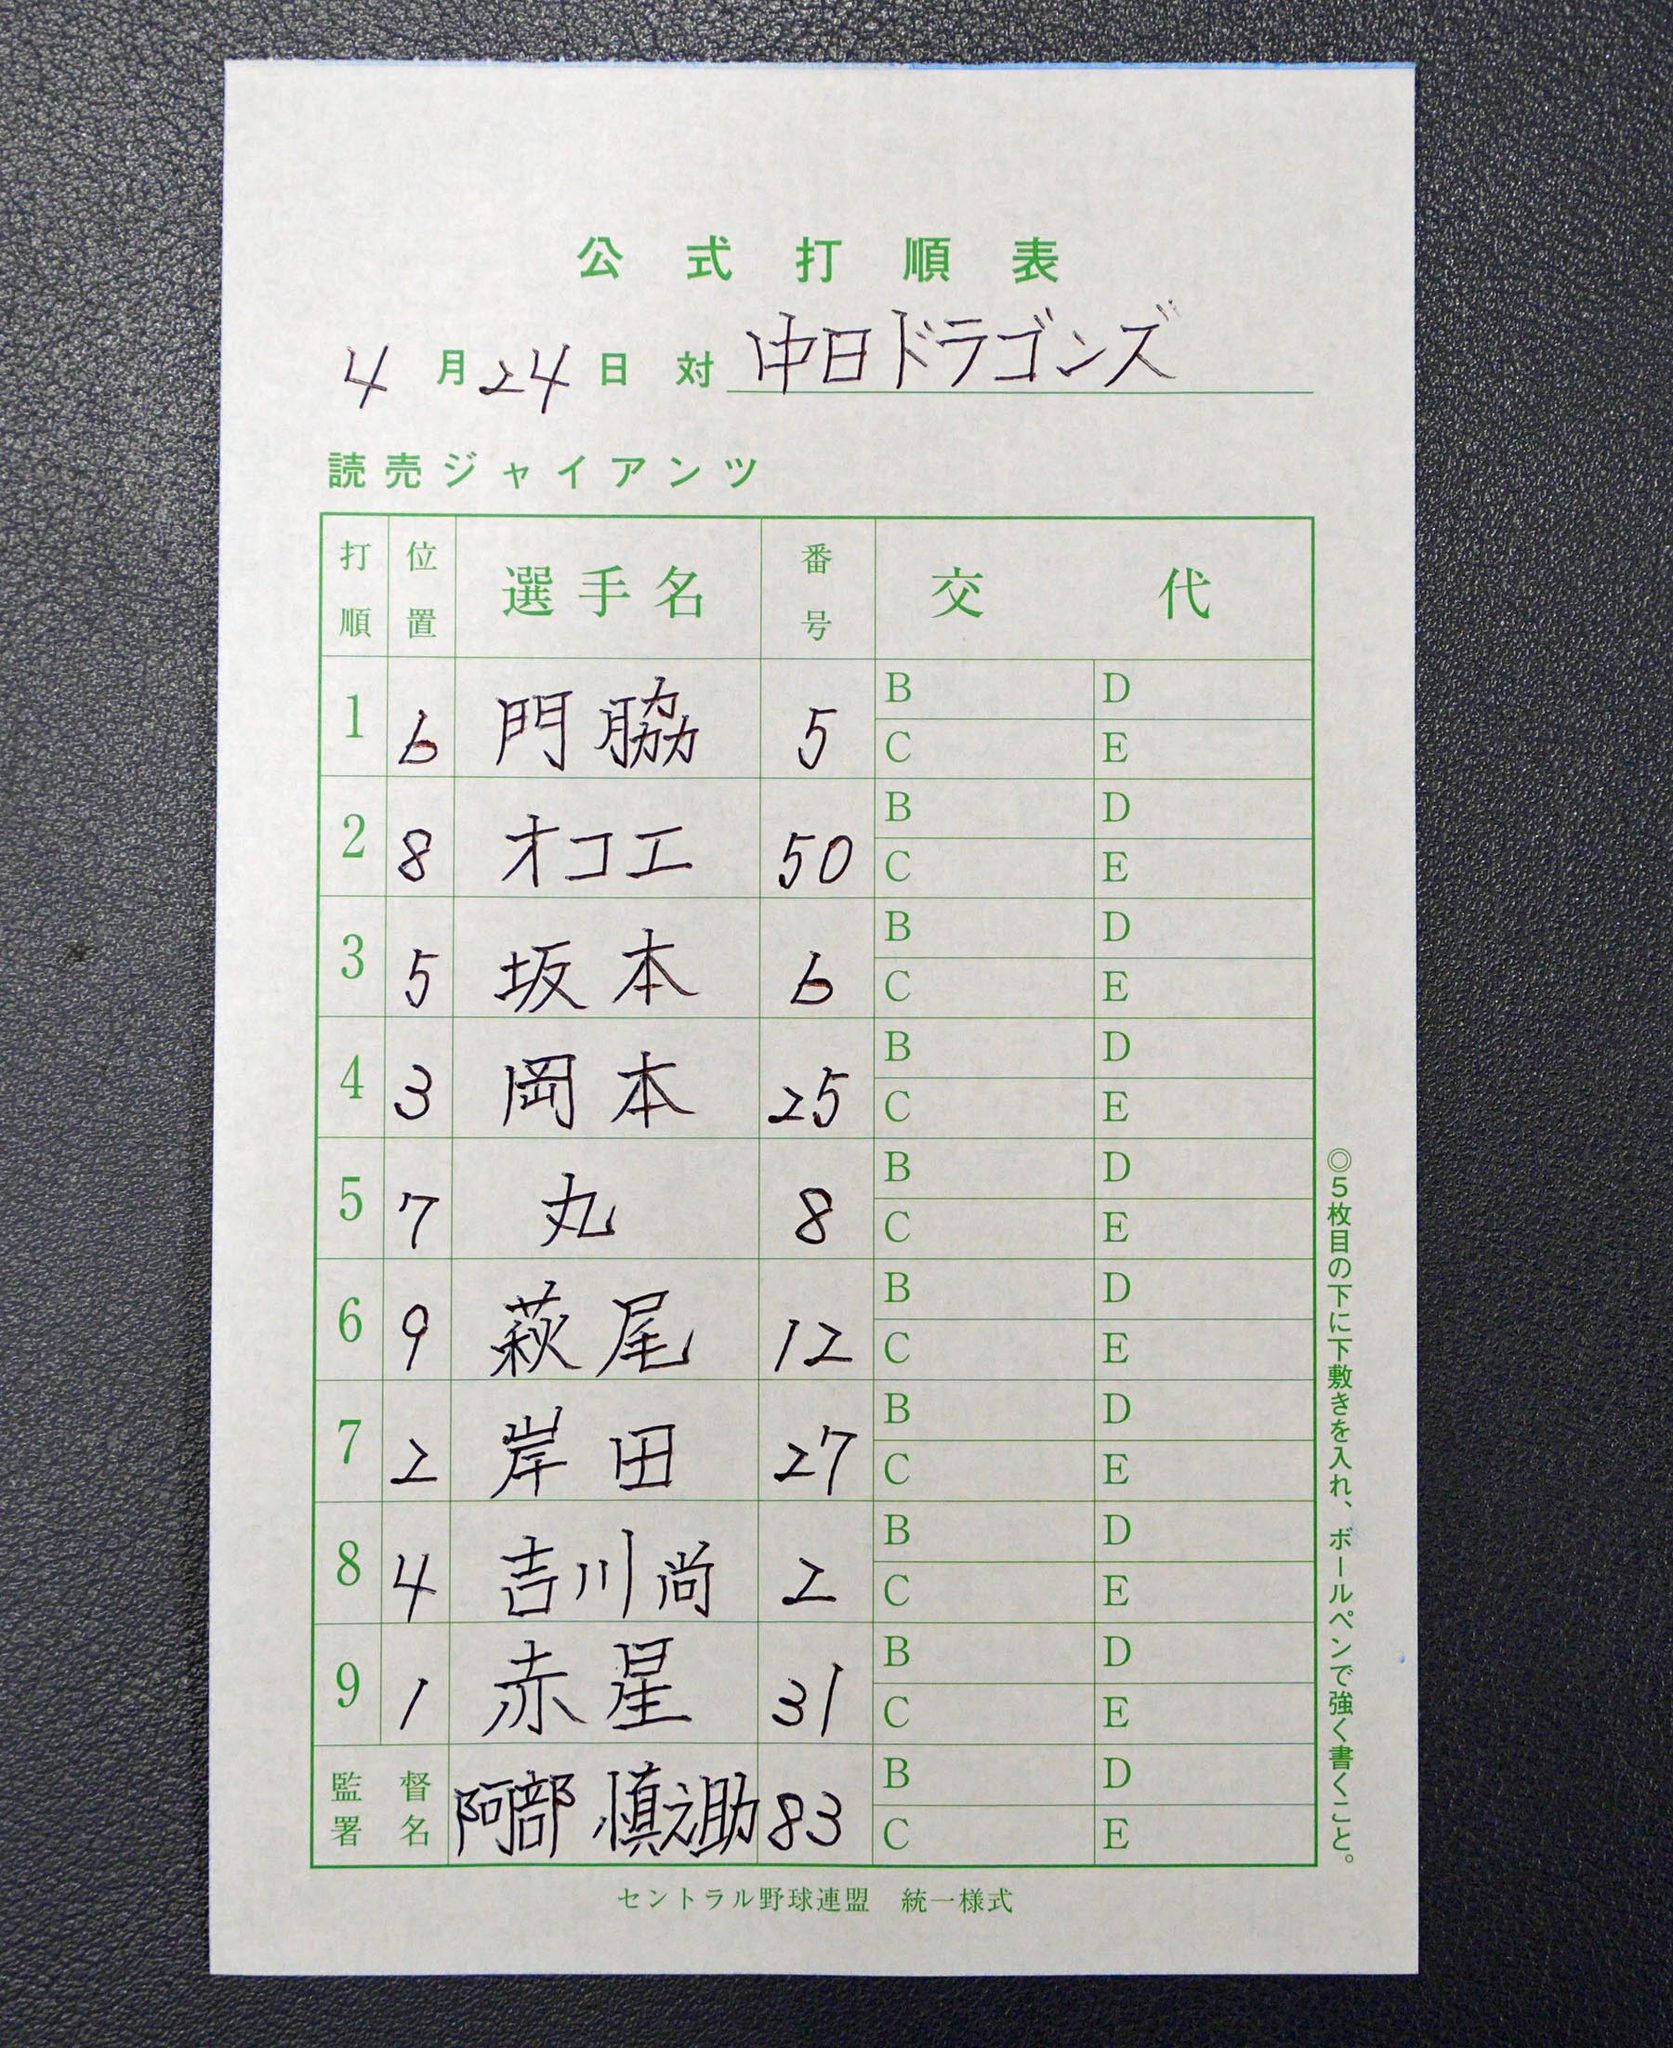 公式打順表
4月24日 対 中日ドラゴンズ
読売ジャイアンツ
打順 位置 選手名 番号 交代
1 6 門脇 5 B D
C E
2 8 オコエ 50 B D
C E
3 5 坂本 6 B D
C E
4 3 岡本 25 B D
C E
5 7 丸 8 B D
C E
6 9 萩尾 12 B D
C E
7 2 岸田 27 B D
C E
8 4 吉川尚 2 B D
C E
9 1 赤星 31 B D
C E
監督署名 阿部 慎之助 83 B D
C E
セントラル野球連盟 統一様式
◎5枚目の下に下敷きを入れ、ボールペンで強く書くこと。